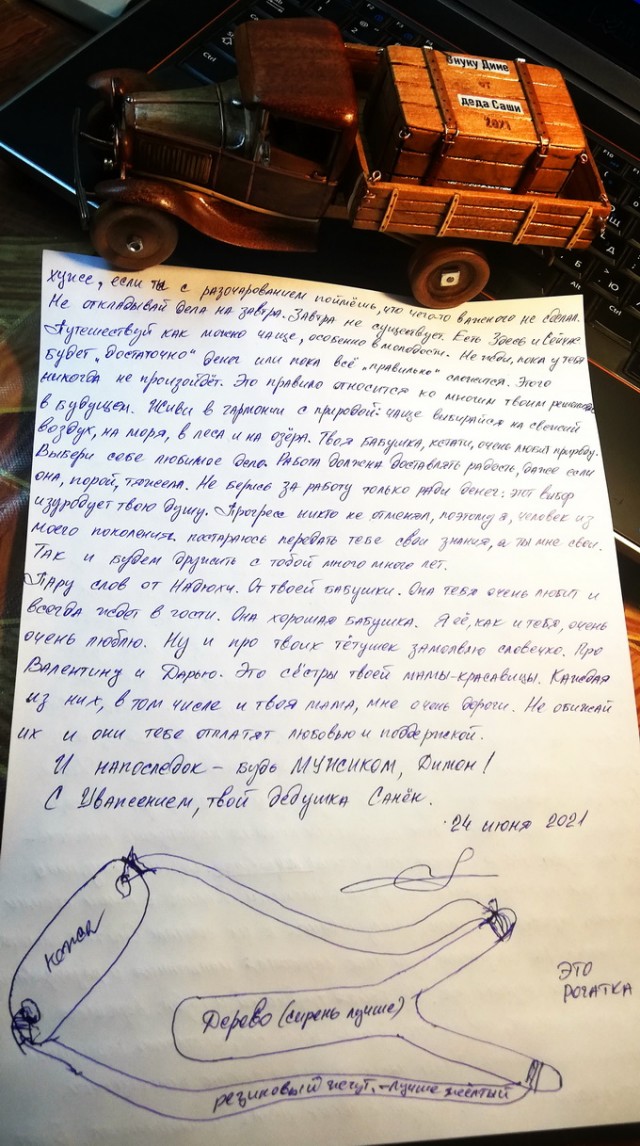 Внуку Диме
от
деда Саши
2021
хуже, если ты с разочарованием поймёшь, что чего-то важного не сделал.
Не откладывай дела на завтра. Завтра не существует. Есть Здесь и Сейчас
Путешествуй как можно чаще, особенно в молодости. Не жди, пока у тебя
будет „достаточно" денег или пока всё „правильно" сложится. Этого
никогда не произойдёт. Это правило относится ко многим твоим решениям
в будущем. Живи в гармонии с природой: чаще выбирайся на свежий
воздух, на моря, в леса и на озёра. Твоя бабушка, кстати, очень любит природу.
Выбери себе любимое дело. Работа должна доставлять радость, даже если
она, порой, тяжела. Не берись за работу только ради денег: этот выбор
изуродует твою душу. Прогресс никто не отменял, поэтому я, человек из
моего поколения постараюсь передать тебе свои знания, а ты мне свои.
Так и будем дружить с тобой много много лет.
Пару слов от Надюхи. От твоей бабушки. Она тебя очень любит и
всегда ждёт в гости. Она хорошая бабушка. Я её, как и тебя, очень
очень люблю. Ну и про твоих тётушек замолвлю словечко. Про
Валентину и Дарью. Это сёстры твоей мамы-красавицы. Каждая
из них, в том числе и твоя мама, мне очень дороги. Не обижай
их и они тебе отплатят любовью и поддержкой.
И напоследок - будь МУЖИКОМ, Димон!
С Уважением, твой дедушка Санёк.
24 июня 2021
кожа
Дерево (сирень лучше)
ЭТО
РОГАТКА
резиновый жгут, - лучше жёлтый